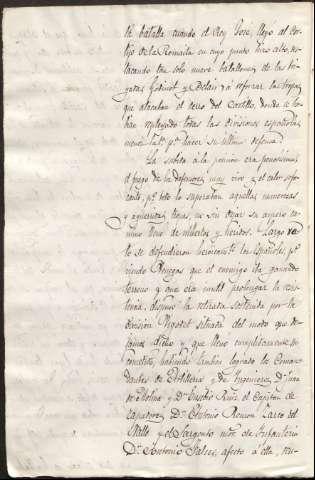 la batalla cuando el Rey José, llegó al Cor-
tijo de la Romaila en cuyo punto hizo alto, des-
tacando tan solo nueve batallones de las bri-
gadas Godinot y Delair á reforzar las tropas
que atacaban el cerro del Castillo, donde se ha-
bian replegado todas las divisiones españolas,
menos la pª hacer su última defensa.
La subida á la posicion era penosísima,
el fuego de los defensores muy vivo y el calor sofo-
cante, pº todo lo superaban aquellas numerosas
y aguerridas tropas, no sin dejar su áspero ca-
mino lleno de muertos y heridos. Largo ra-
to se defendieron heroicamte los Españoles, pº
viendo Venegas que el enemigo iba ganando
terreno y que era inutil prolongar la resis-
tencia, dispuso la retirada sostenida por la
division Vigodet situada del modo que de-
jamos dicho y que llenó cumplidamente su
cometido, habiendo tambien logrado los Coman-
dantes de Artilleria y de Ingenieros, Dn Juan
de Molina y Dn Eusebio Ruiz, el Capitan de
Zapadores Dn Antonio Remon Zarco del
Valle y el Sargento mor de Infanteria
Dn Antonio afecto á ella,